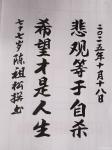 二〇二五年十月十八日
悲观等于自杀
希望才是人生
七十七岁 陈祖松撰书